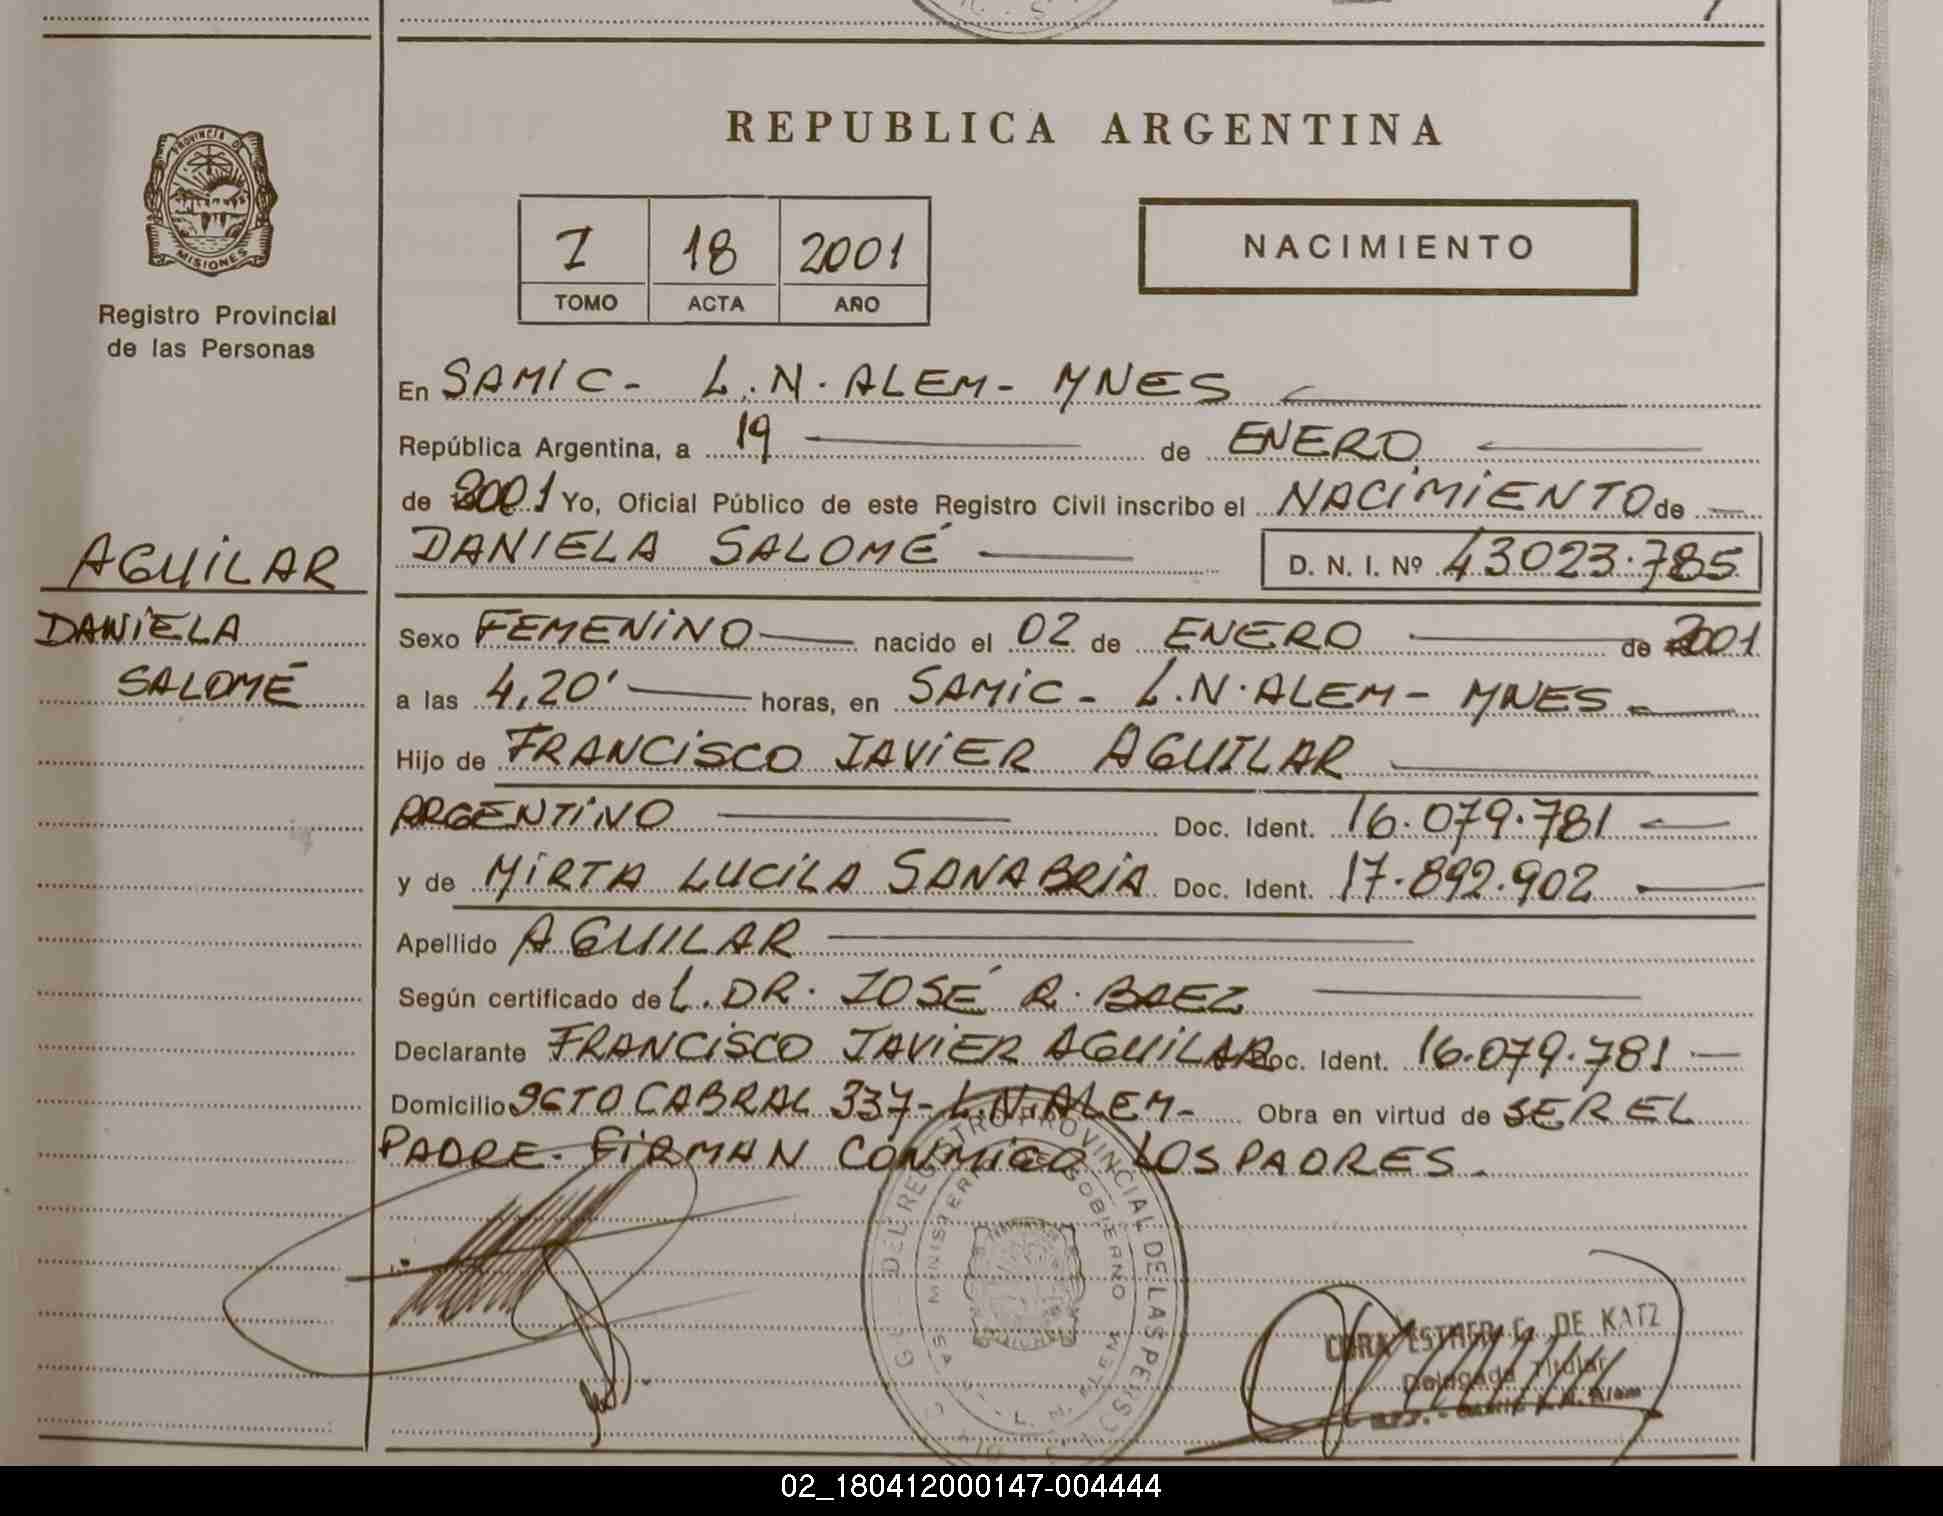 REPUBLICA ARGENTINA
PROVINCIA DE
MISIONES
Registro Provincial
de las Personas
I 18 2001
TOMO ACTA AÑO
NACIMIENTO
En SAMIC - L.N. ALEM - MNES
República Argentina, a 19 de ENERO
de 2001 Yo, Oficial Público de este Registro Civil inscribo el NACIMIENTO de
DANIELA SALOMÉ D. N. I. Nº 43023.785
AGUILAR
DANIELA
SALOMÉ
Sexo FEMENINO nacido el 02 de ENERO de 2001
a las 4,20' horas, en SAMIC - L.N. ALEM - MNES -
Hijo de FRANCISCO JAVIER AGUILAR
ARGENTINO Doc. Ident. 16.079.781
y de MIRTA LUCILA SANABRIA Doc. Ident. 17.892.902
Apellido AGUILAR
Según certificado del DR. JOSÉ R. BAEZ
Declarante FRANCISCO JAVIER AGUILAR Doc. Ident. 16.079.781
Domicilio SGTO CABRAL 337 - L.N. ALEM - Obra en virtud de SER EL
PADRE. FIRMAN CONMIGO LOS PADRES.
REGISTRO PROVINCIAL DE LAS PERSONAS
ESTHER C. DE KATZ
Delegada Titular
L. N. Alem
02_180412000147-004444